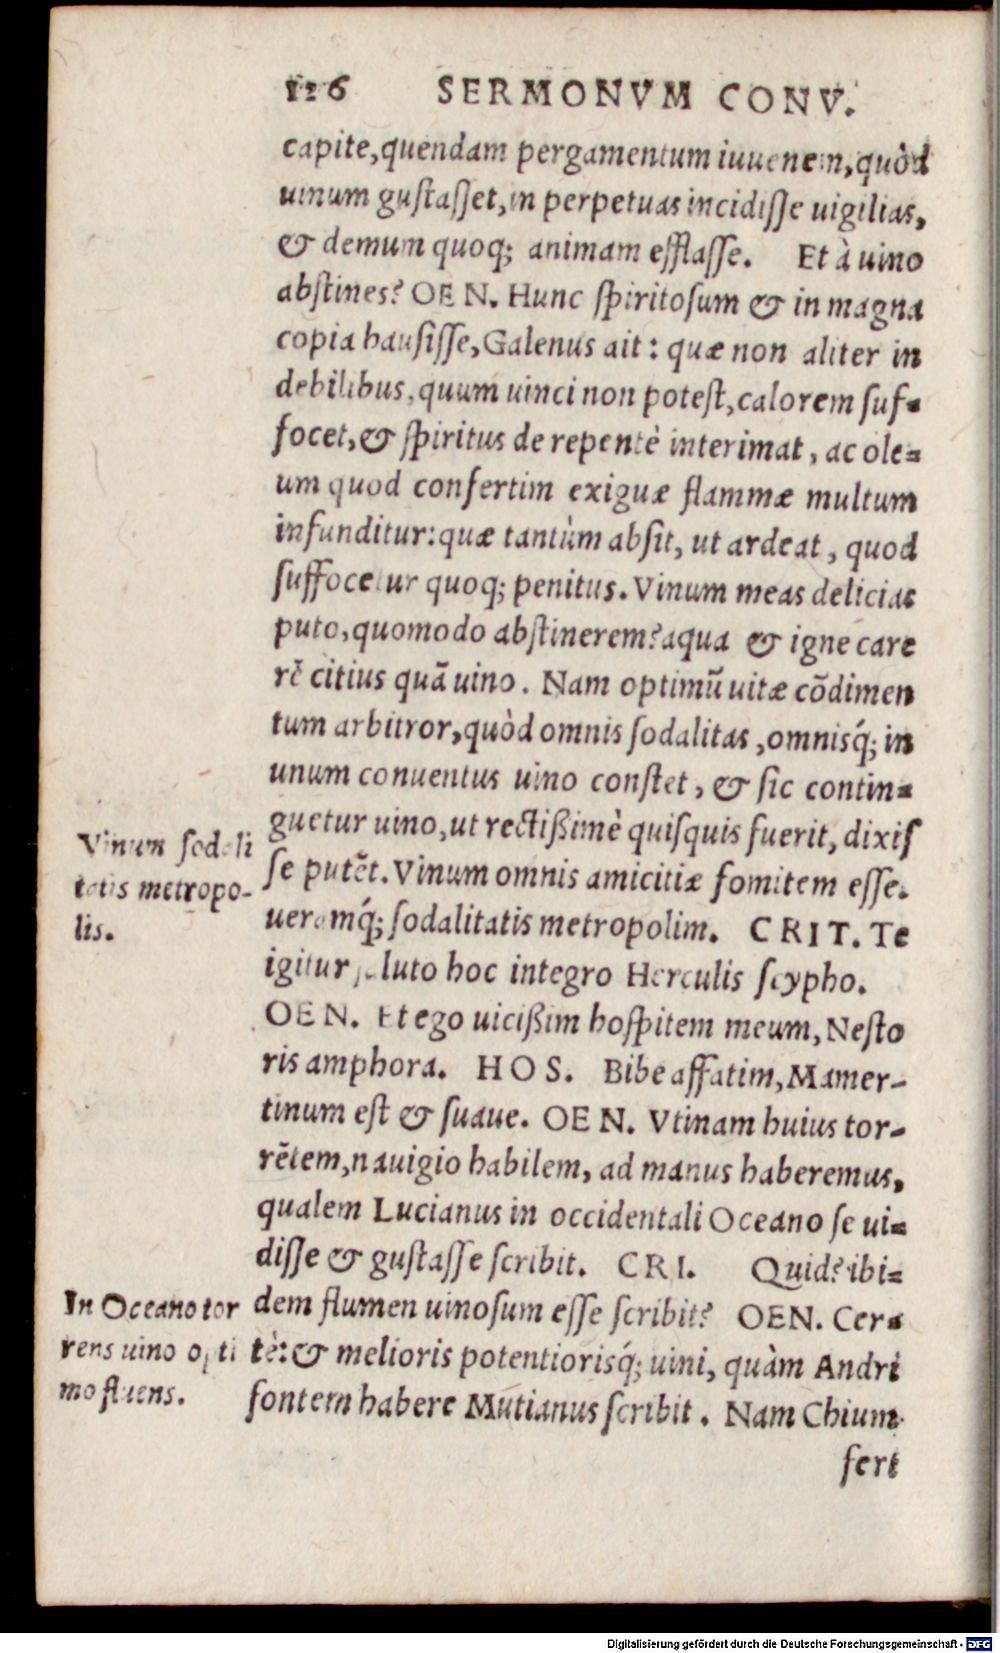 116 SERMONVM CONV.
capite, quendam pergamentum iuuenem, quòd
uinum gustasset, in perpetuas incidisse uigilias,
& demum quoq; animam efflasse. Et à uino
abstines? OEN. Hunc spiritosum & in magna
copia hausisse, Galenus ait: quæ non aliter in
debilibus, quum uinci non potest, calorem suf=
focet, & spiritus de repentè interimat, ac ole=
um quod confertim exiguæ flammæ multum
infunditur: quæ tantùm absit, ut ardeat, quod
suffocetur quoq; penitus. Vinum meas delicias
puto, quomodo abstinerem? aqua & igne care
rẽ citius quã uino. Nam optimũ uitæ cõdimen
tum arbitror, quòd omnis sodalitas, omnisq́; in
unum conuentus uino constet, & sic contin=
guetur uino, ut rectißimè quisquis fuerit, dixis
se putẽt. Vinum omnis amicitiæ fomitem esse.
ueramq́; sodalitatis metropolim. CRIT. Te
Vinum sodali
tatis metropo-
lis.
igitur soluto hoc integro Herculis scypho.
OEN. Et ego uicißim hospitem meum, Nesto
ris amphora. HOS. Bibe affatim, Mamer-
tinum est & suaue. OEN. Vtinam huius tor-
rẽtem, nauigio habilem, ad manus haberemus,
qualem Lucianus in occidentali Oceano se ui=
disse & gustasse scribit. CRI. Quid? ibi=
dem flumen uinosum esse scribit? OEN. Cer=
tè: & melioris potentiorisq́; uini, quàm Andri
fontem habere Mutianus scribit. Nam Chium
In Oceano tor
rens uino opti
mo fluens.
fert